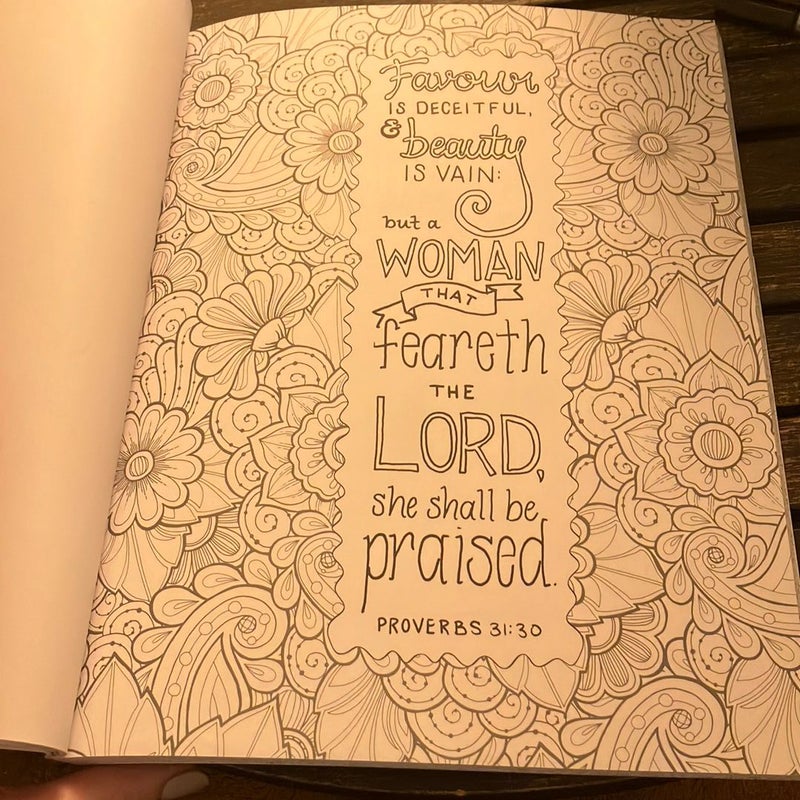 Favour
IS DECEITFUL,
& beauty
IS VAIN:
but a
WOMAN
THAT
feareth
THE
LORD,
she shall be
praised.
PROVERBS 31:30